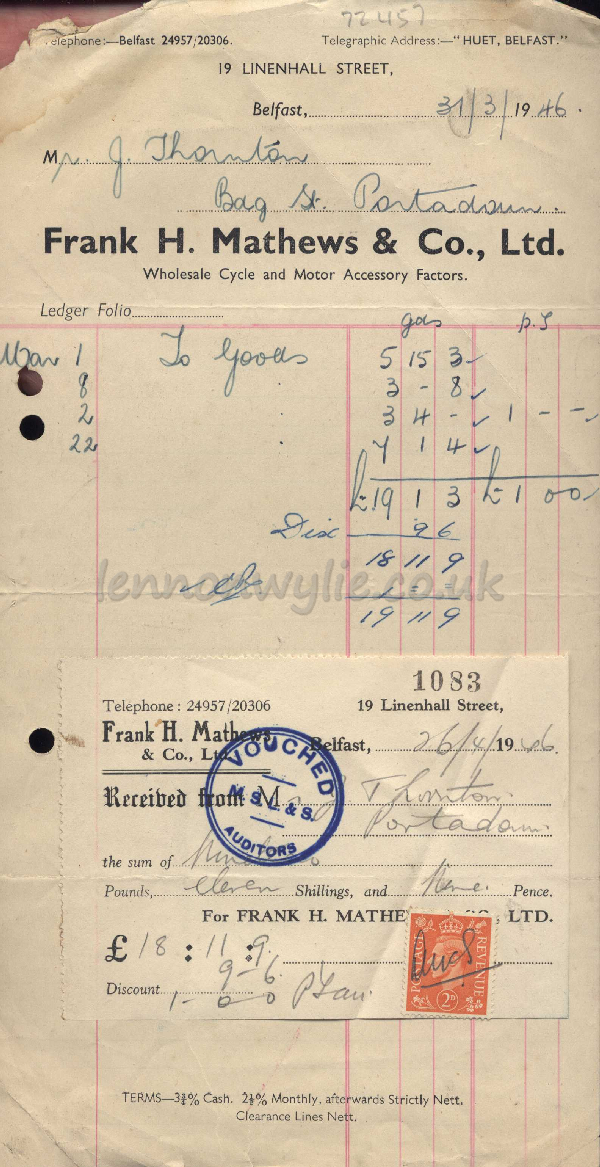 72457
Telephone:—Belfast 24957/20306. Telegraphic Address:—"HUET, BELFAST."
19 LINENHALL STREET,
Belfast, 31/3/1946.
Mr. J. Thornton
Bag St. Portadown.
Frank H. Mathews & Co., Ltd.
Wholesale Cycle and Motor Accessory Factors.
Ledger Folio
gds p.T
Mar 1 To Goods 5 15 3
8 3 - 8
2 3 4 - 1 - -
22 7 1 4
£19 1 3 £1 0 0
Dis 9 6
18 11 9
1 - -
19 11 9
lennonwylie.co.uk
1083
Telephone: 24957/20306 19 Linenhall Street,
Frank H. Mathews
& Co., Ltd. Belfast, 26/4/1946.
VOUCHED
M.S.L. & S.
AUDITORS
Received from M J Thornton
Portadown.
the sum of
Pounds, eleven Shillings, and Nine. Pence.
For FRANK H. MATHE CO., LTD.
£18 : 11 : 9.
9-6
Discount 1-0-0 P Tax.
POSTAGE REVENUE
2D
TERMS—3¾% Cash. 2½% Monthly, afterwards Strictly Nett.
Clearance Lines Nett.